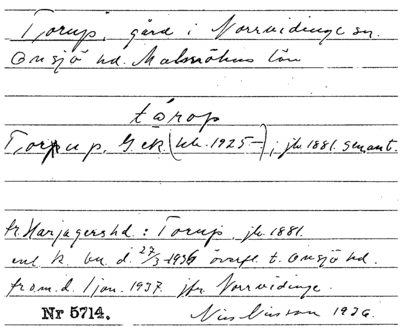 Torup, gård i Norrvidinge sn.
Onsjö hd. Malmöhus län
tɷrop
Torup, G ek (utg. 1925–), jb. 1881. gen.ant.
fr. Harjagers hd: Torup, jb. 1881.
enl. k. br. d. 27/3 1936 överfl. t. Onsjö hd.
fr.o.m. d. 1 jan. 1937. jfr Norrvidinge.
Nr 5714. Nils Nilsson 1936.